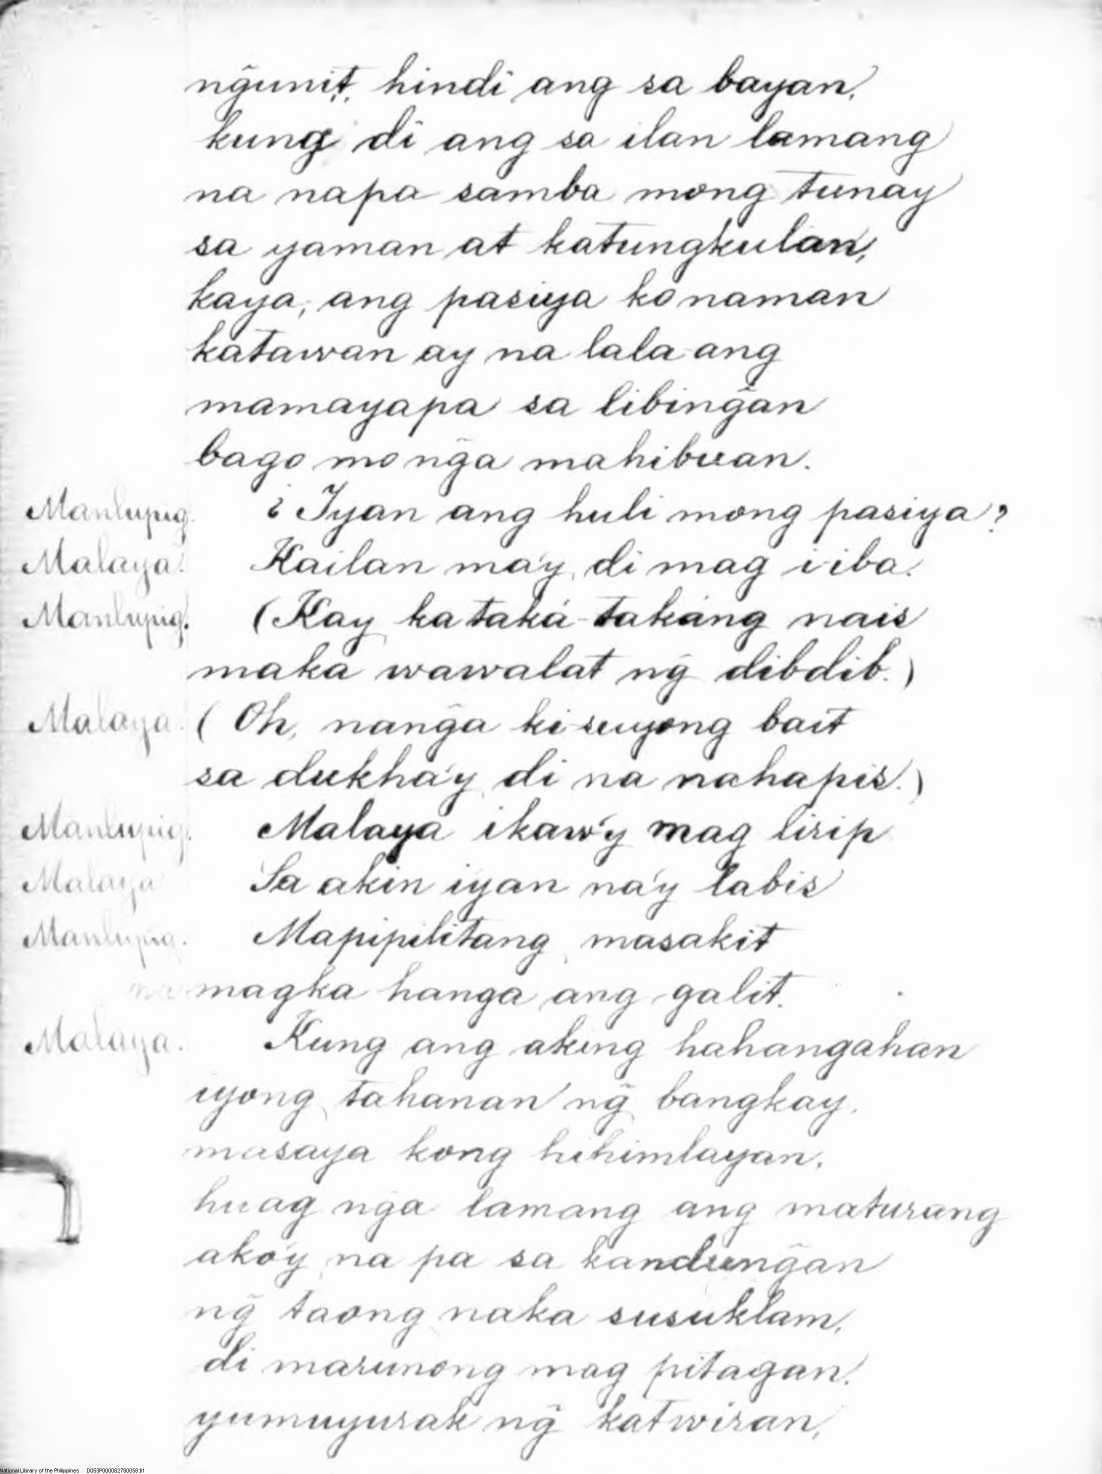 ng̃unit, hindi ang sa bayan,
kung di ang sa ilan lamang
na napa samba mong tunay
sa yaman at katungkulan,
kaya, ang pasiya ko naman
katawan ay na lala-ang
mamayapa sa libing̃an
bago mo ng̃a mahibuan.
Manlupig. ¿Iyan ang huli mong pasiya?
Malaya. Kailan ma'y di mag iiba.
Manlupig. (Kay kataká-takáng nais
maka wawalat ng̃ dibdib.)
Malaya. (Oh, nang̃a ki-suyong bait
sa dukha'y di na nahapis.)
Manlupig. Malaya ikaw'y mag lirip
Malaya Sa akin iyan na'y labis
Manlupig. Mapipilitang masakit
na magka hanga ang galit.
Malaya. Kung ang aking hahangahan
iyong tahanan ng̃ bangkay,
masaya kong hihimlayan,
huag nga lamang ang maturang
ako'y na pa sa kandung̃an
ng̃ taong naka susuklam,
di marunong mag pitagan,
yumuyurak ng̃ katwiran,
National Library of the Philippines